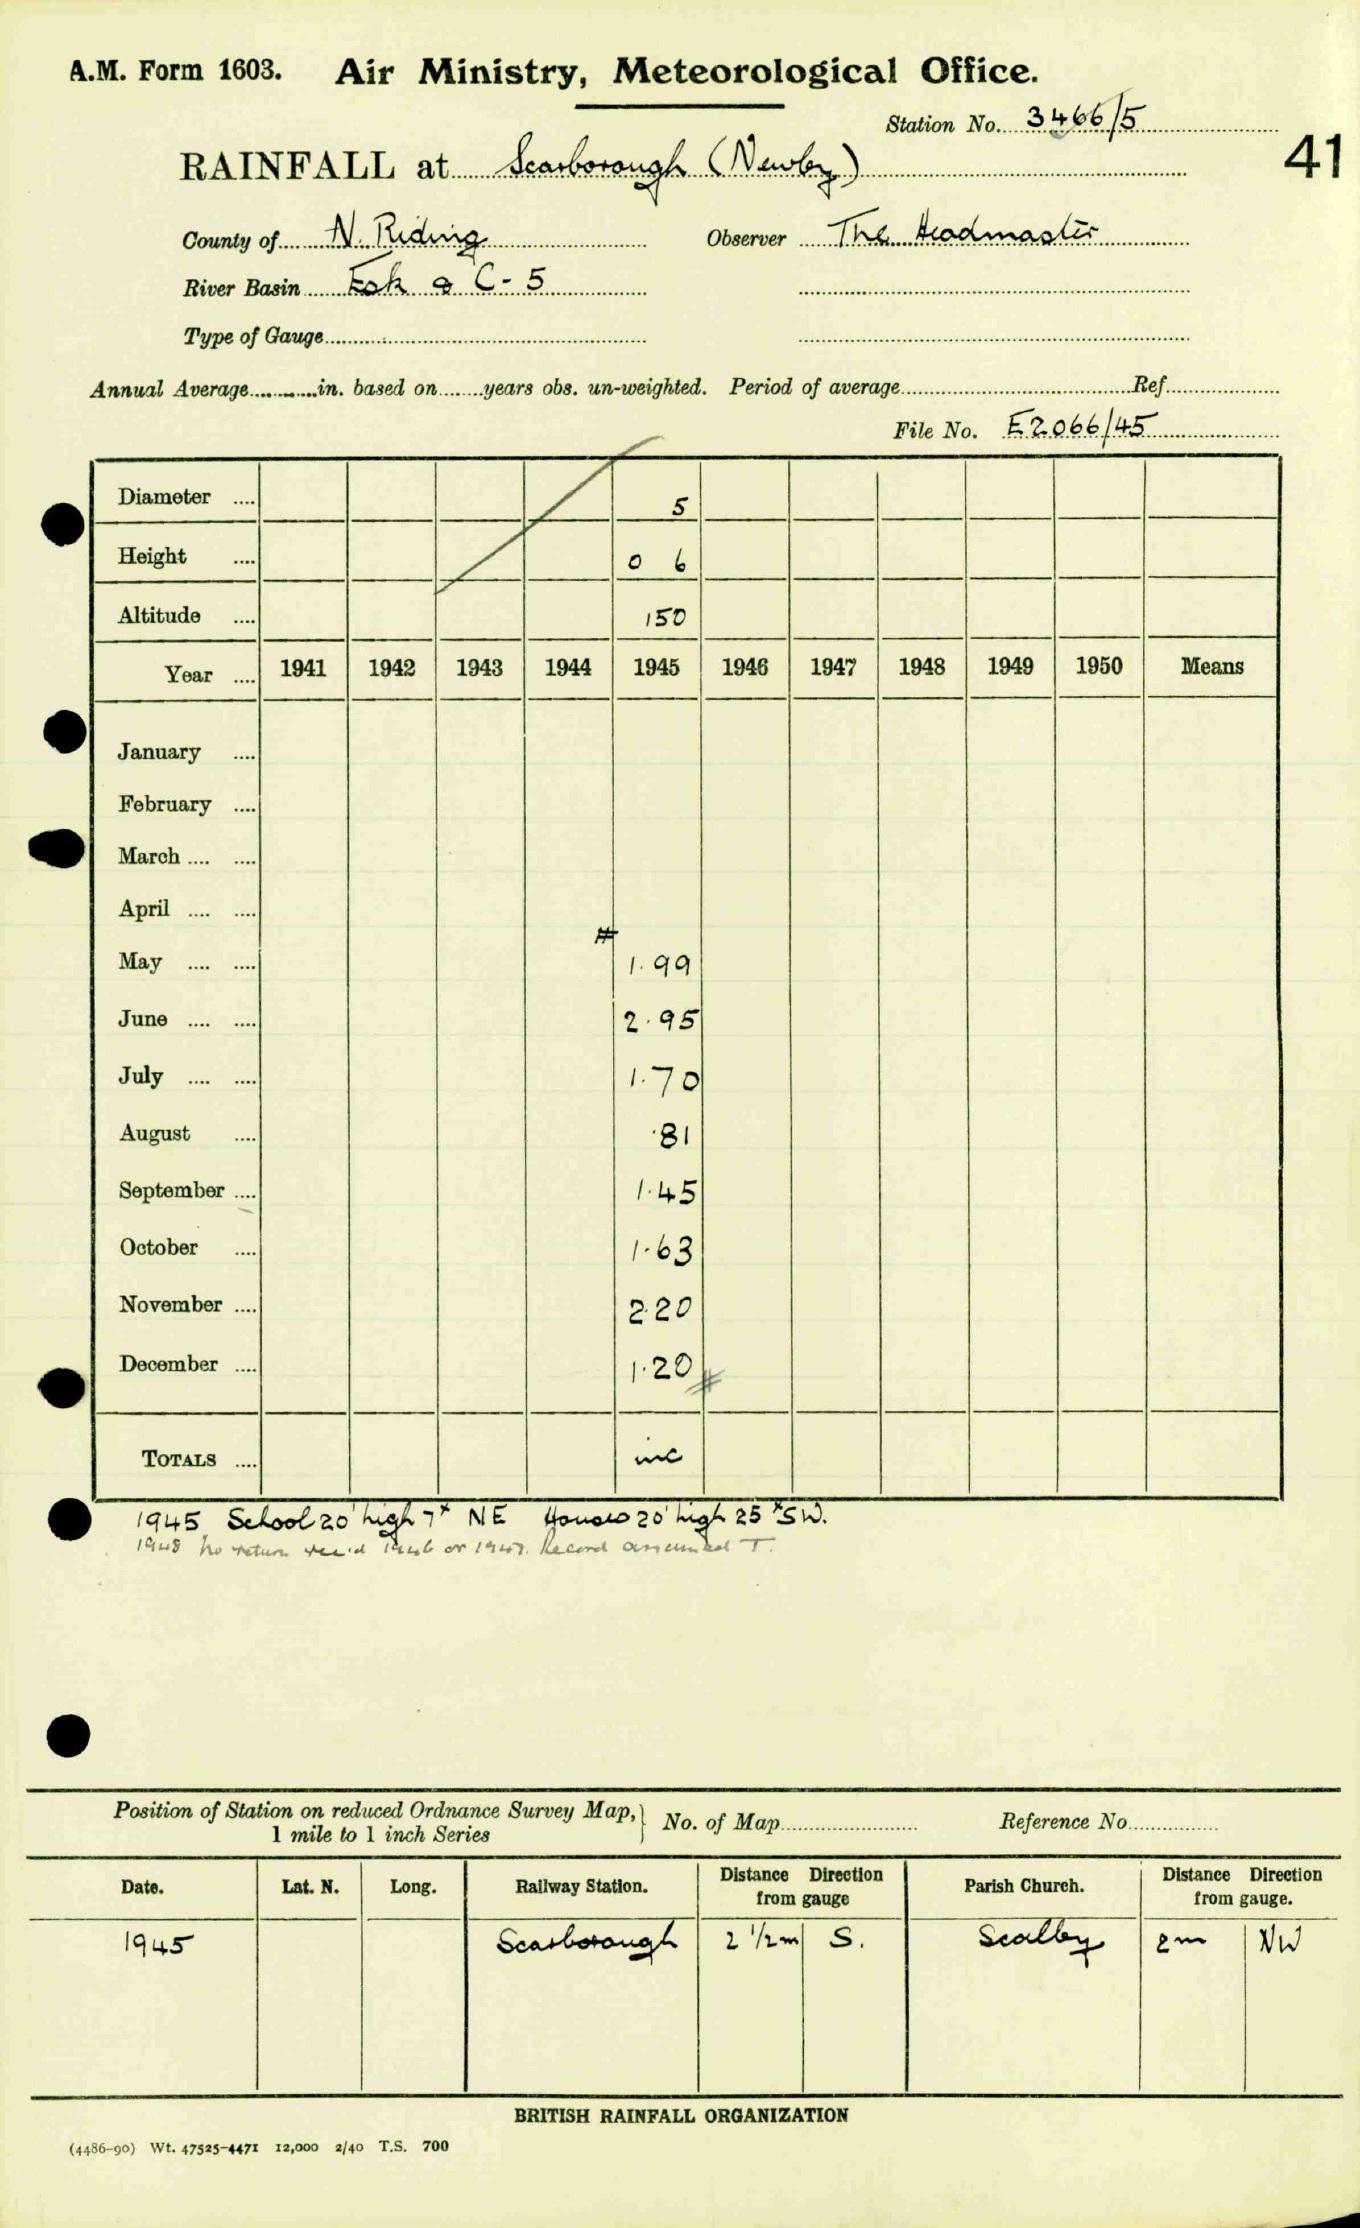 A.M. Form 1603. Air Ministry, Meteorological Office.
Station No. 3466/5
41
RAINFALL at Scarborough (Newby)
County of N. Riding Observer The Headmaster
River Basin Esk & C-5
Type of Gauge
Annual Average in. based on years obs. un-weighted. Period of average Ref
File No. E2066/45
Diameter .... 5
Height .... 0 6
Altitude .... 150
Year .... 1941 1942 1943 1944 1945 1946 1947 1948 1949 1950 Means
January ....
February ....
March .... ....
April .... ....
#
May .... .... 1.99
June .... .... 2.95
July .... .... 1.70
August .... .81
September .... 1.45
October .... 1.63
November .... 2.20
December .... 1.20 #
TOTALS .... inc
1945 School 20' high 7x NE Houses 20' high 25x SW.
1948 No return rec'd 1946 or 1947. Record assumed T.
Position of Station on reduced Ordnance Survey Map, } No. of Map Reference No
1 mile to 1 inch Series
Date. Lat. N. Long. Railway Station. Distance Direction from gauge Parish Church. Distance Direction from gauge.
1945 Scarborough 2 1/2m S. Scalby 2m NW
BRITISH RAINFALL ORGANIZATION
(4486-90) Wt. 47525-4471 12,000 2/40 T.S. 700